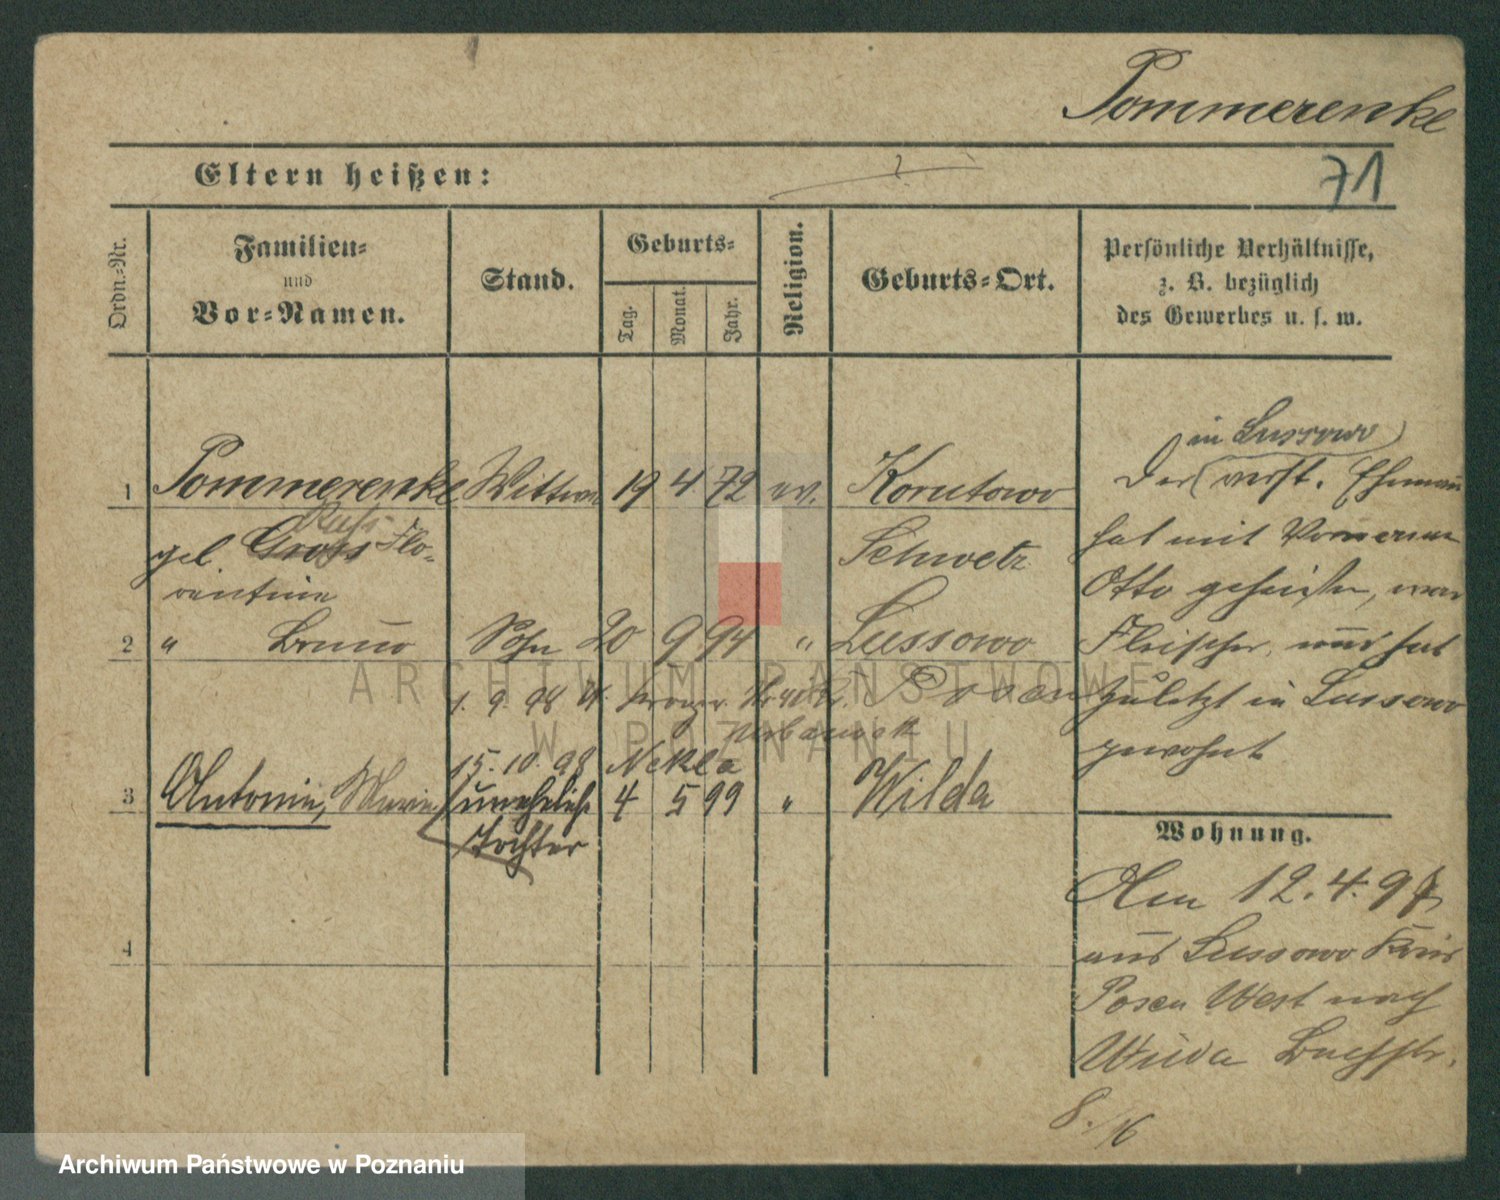 Pommerenke
Eltern heißen: ?
71
Ordn.-Nr.
Familien-
und
Vor-Namen.
Stand.
Geburts-
Tag.
Monat.
Jahr.
Religion.
Geburts-Ort.
Persönliche Verhältnisse,
z. B. bezüglich
des Gewerbes u. s. w.
1 Pommerenke Wittwe 19 4 72 ev. Korutowo
gel. Gross Flo-
rentine
Schwetz
2 " Bruno Sohn 20 9 94 " Lussowo
1. 9. 98 Posen
15. 10. 98 Nekla
3 Antonie, Marie unehelich 4 5 99 " Wilda
Tochter
4
in Lussowo
Der verst. Ehemann
hat mit Vornamen
Otto geheißen, war
Fleischer, und hat
zuletzt in Lussowo
gewohnt
Wohnung.
Am 12.4.97
aus Lussowo Kreis
Posen West nach
Wilda Bachstr.
8./16
ARCHIWUM PAŃSTWOWE
W POZNANIU
Archiwum Państwowe w Poznaniu